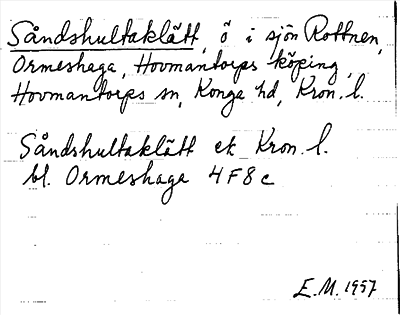 Såndshultaklätt, ö i sjön Rottnen,
Ormeshaga, Hovmantorps köping,
Hovmantorps sn, Konga hd, Kron. l.
Såndshultaklätt ek Kron. l.
bl. Ormeshaga 4F8c
E.M. 1957